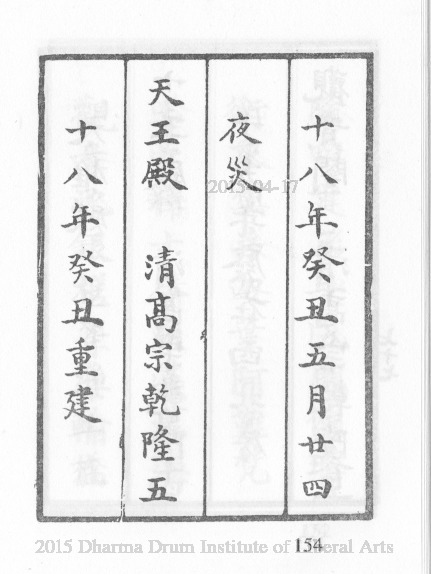 十八年癸丑五月廿四
夜災
天王殿 清高宗乾隆五
十八年癸丑重建
2015-04-17
154
2015 Dharma Drum Institute of Liberal Arts